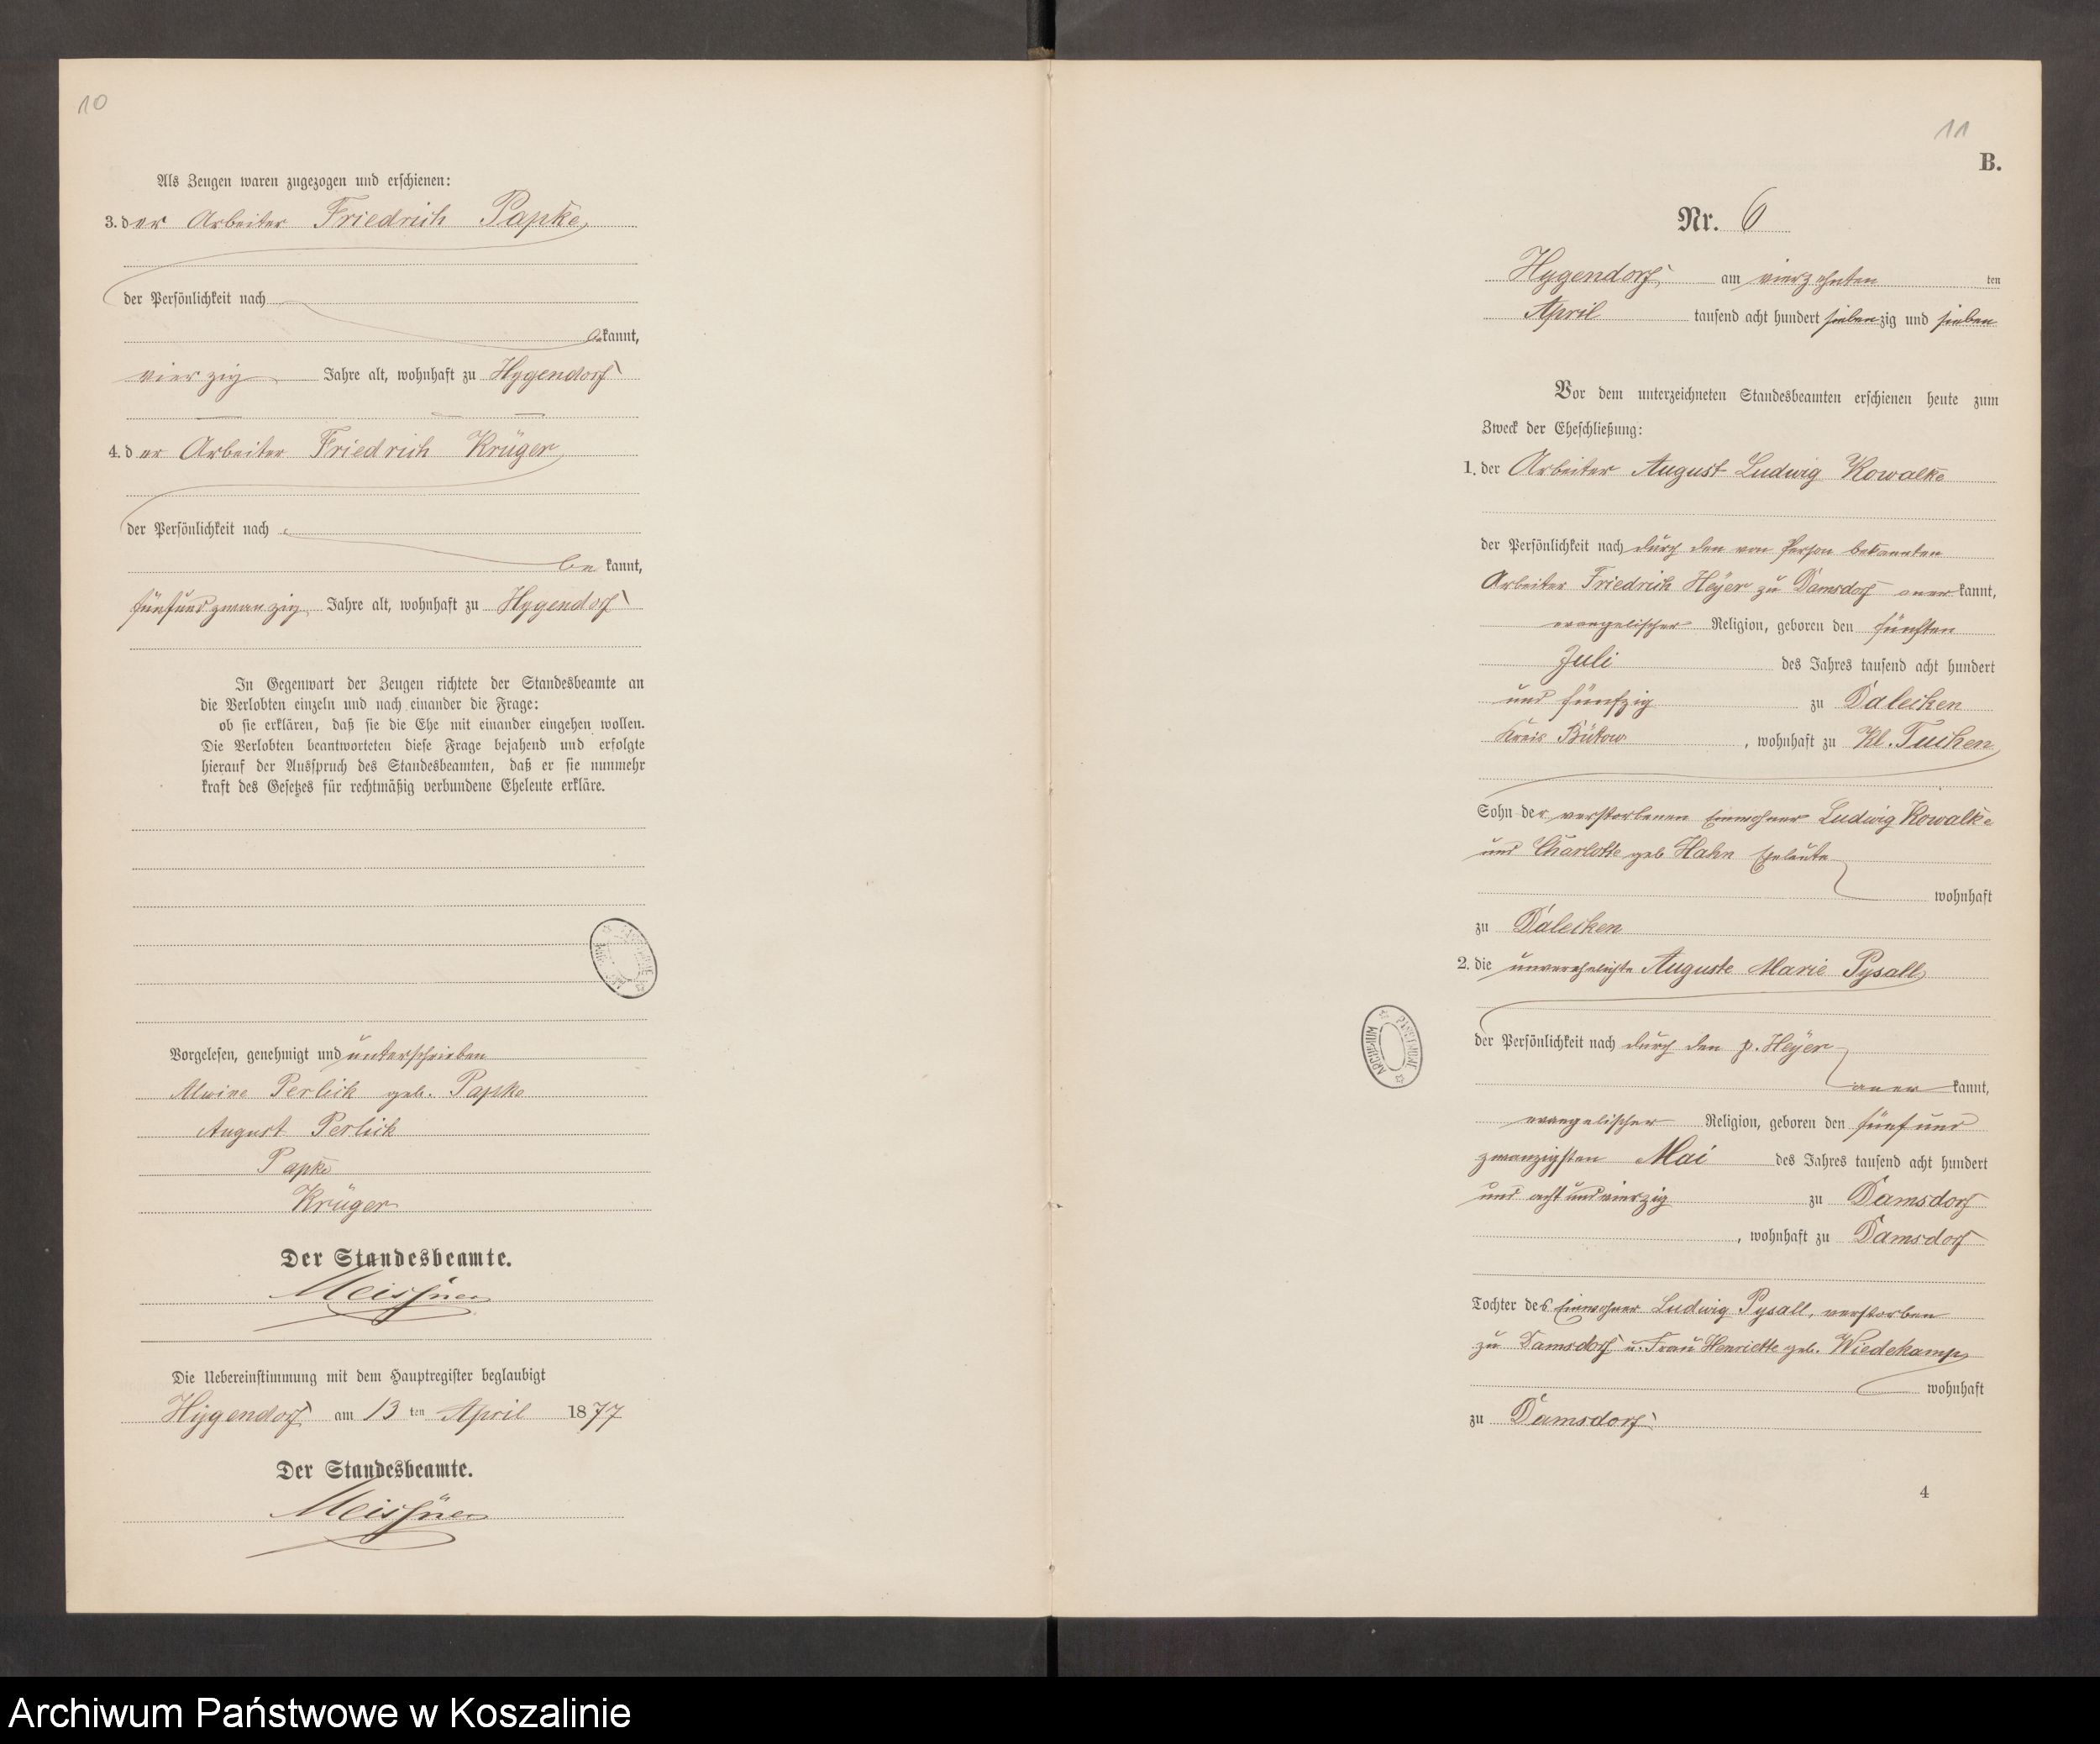 10
Als Zeugen waren zugezogen und erschienen:
3. der Arbeiter Friedrich Papke
der Persönlichkeit nach
bekannt,
vierzig Jahre alt, wohnhaft zu Hygendorf
4. der Arbeiter Friedrich Krüger
der Persönlichkeit nach
be kannt,
fünfundzwanzig Jahre alt, wohnhaft zu Hygendorf
In Gegenwart der Zeugen richtete der Standesbeamte an
die Verlobten einzeln und nach einander die Frage:
ob sie erklären, daß sie die Ehe mit einander eingehen wollen.
Die Verlobten beantworteten diese Frage bejahend und erfolgte
hierauf der Ausspruch des Standesbeamten, daß er sie nunmehr
kraft des Gesetzes für rechtmäßig verbundene Eheleute erkläre.
Vorgelesen, genehmigt und unterschrieben
Alwine Perlick geb. Papke
August Perlick
Papke
Krüger
Der Standesbeamte.
Meissner
Die Uebereinstimmung mit dem Hauptregister beglaubigt
Hygendorf am 13 ten April 1877
Der Standesbeamte.
Meissner
11
B.
Nr. 6
Hygendorf, am vierzehnten ten
April tausend acht hundert siebenzig und sieben
Vor dem unterzeichneten Standesbeamten erschienen heute zum
Zweck der Eheschließung:
1. der Arbeiter August Ludwig Kowalke
der Persönlichkeit nach durch den von Person bekannten
Arbeiter Friedrich Heyer zu Damsdorf anerkannt,
evangelischer Religion, geboren den fünften
Juli des Jahres tausend acht hundert
und fünfzig zu Dalecken
Kreis Bütow, wohnhaft zu Kl. Tuchen
Sohn der verstorbenen Einwohner Ludwig Kowalke
und Charlotte geb Hahn Eheleute
wohnhaft
zu Dalecken
2. die unverehelichte Auguste Marie Pysall
der Persönlichkeit nach durch den p. Heyer
aner kannt,
evangelischer Religion, geboren den fünfund
zwanzigsten Mai des Jahres tausend acht hundert
und acht und vierzig zu Damsdorf
, wohnhaft zu Damsdorf
Tochter des Einwohner Ludwig Pysall, verstorben
zu Damsdorf u. Frau Henriette geb. Wiedekamp
wohnhaft
zu Damsdorf
4
ARCHIWUM PAŃSTWOWE
Archiwum Państwowe w Koszalinie